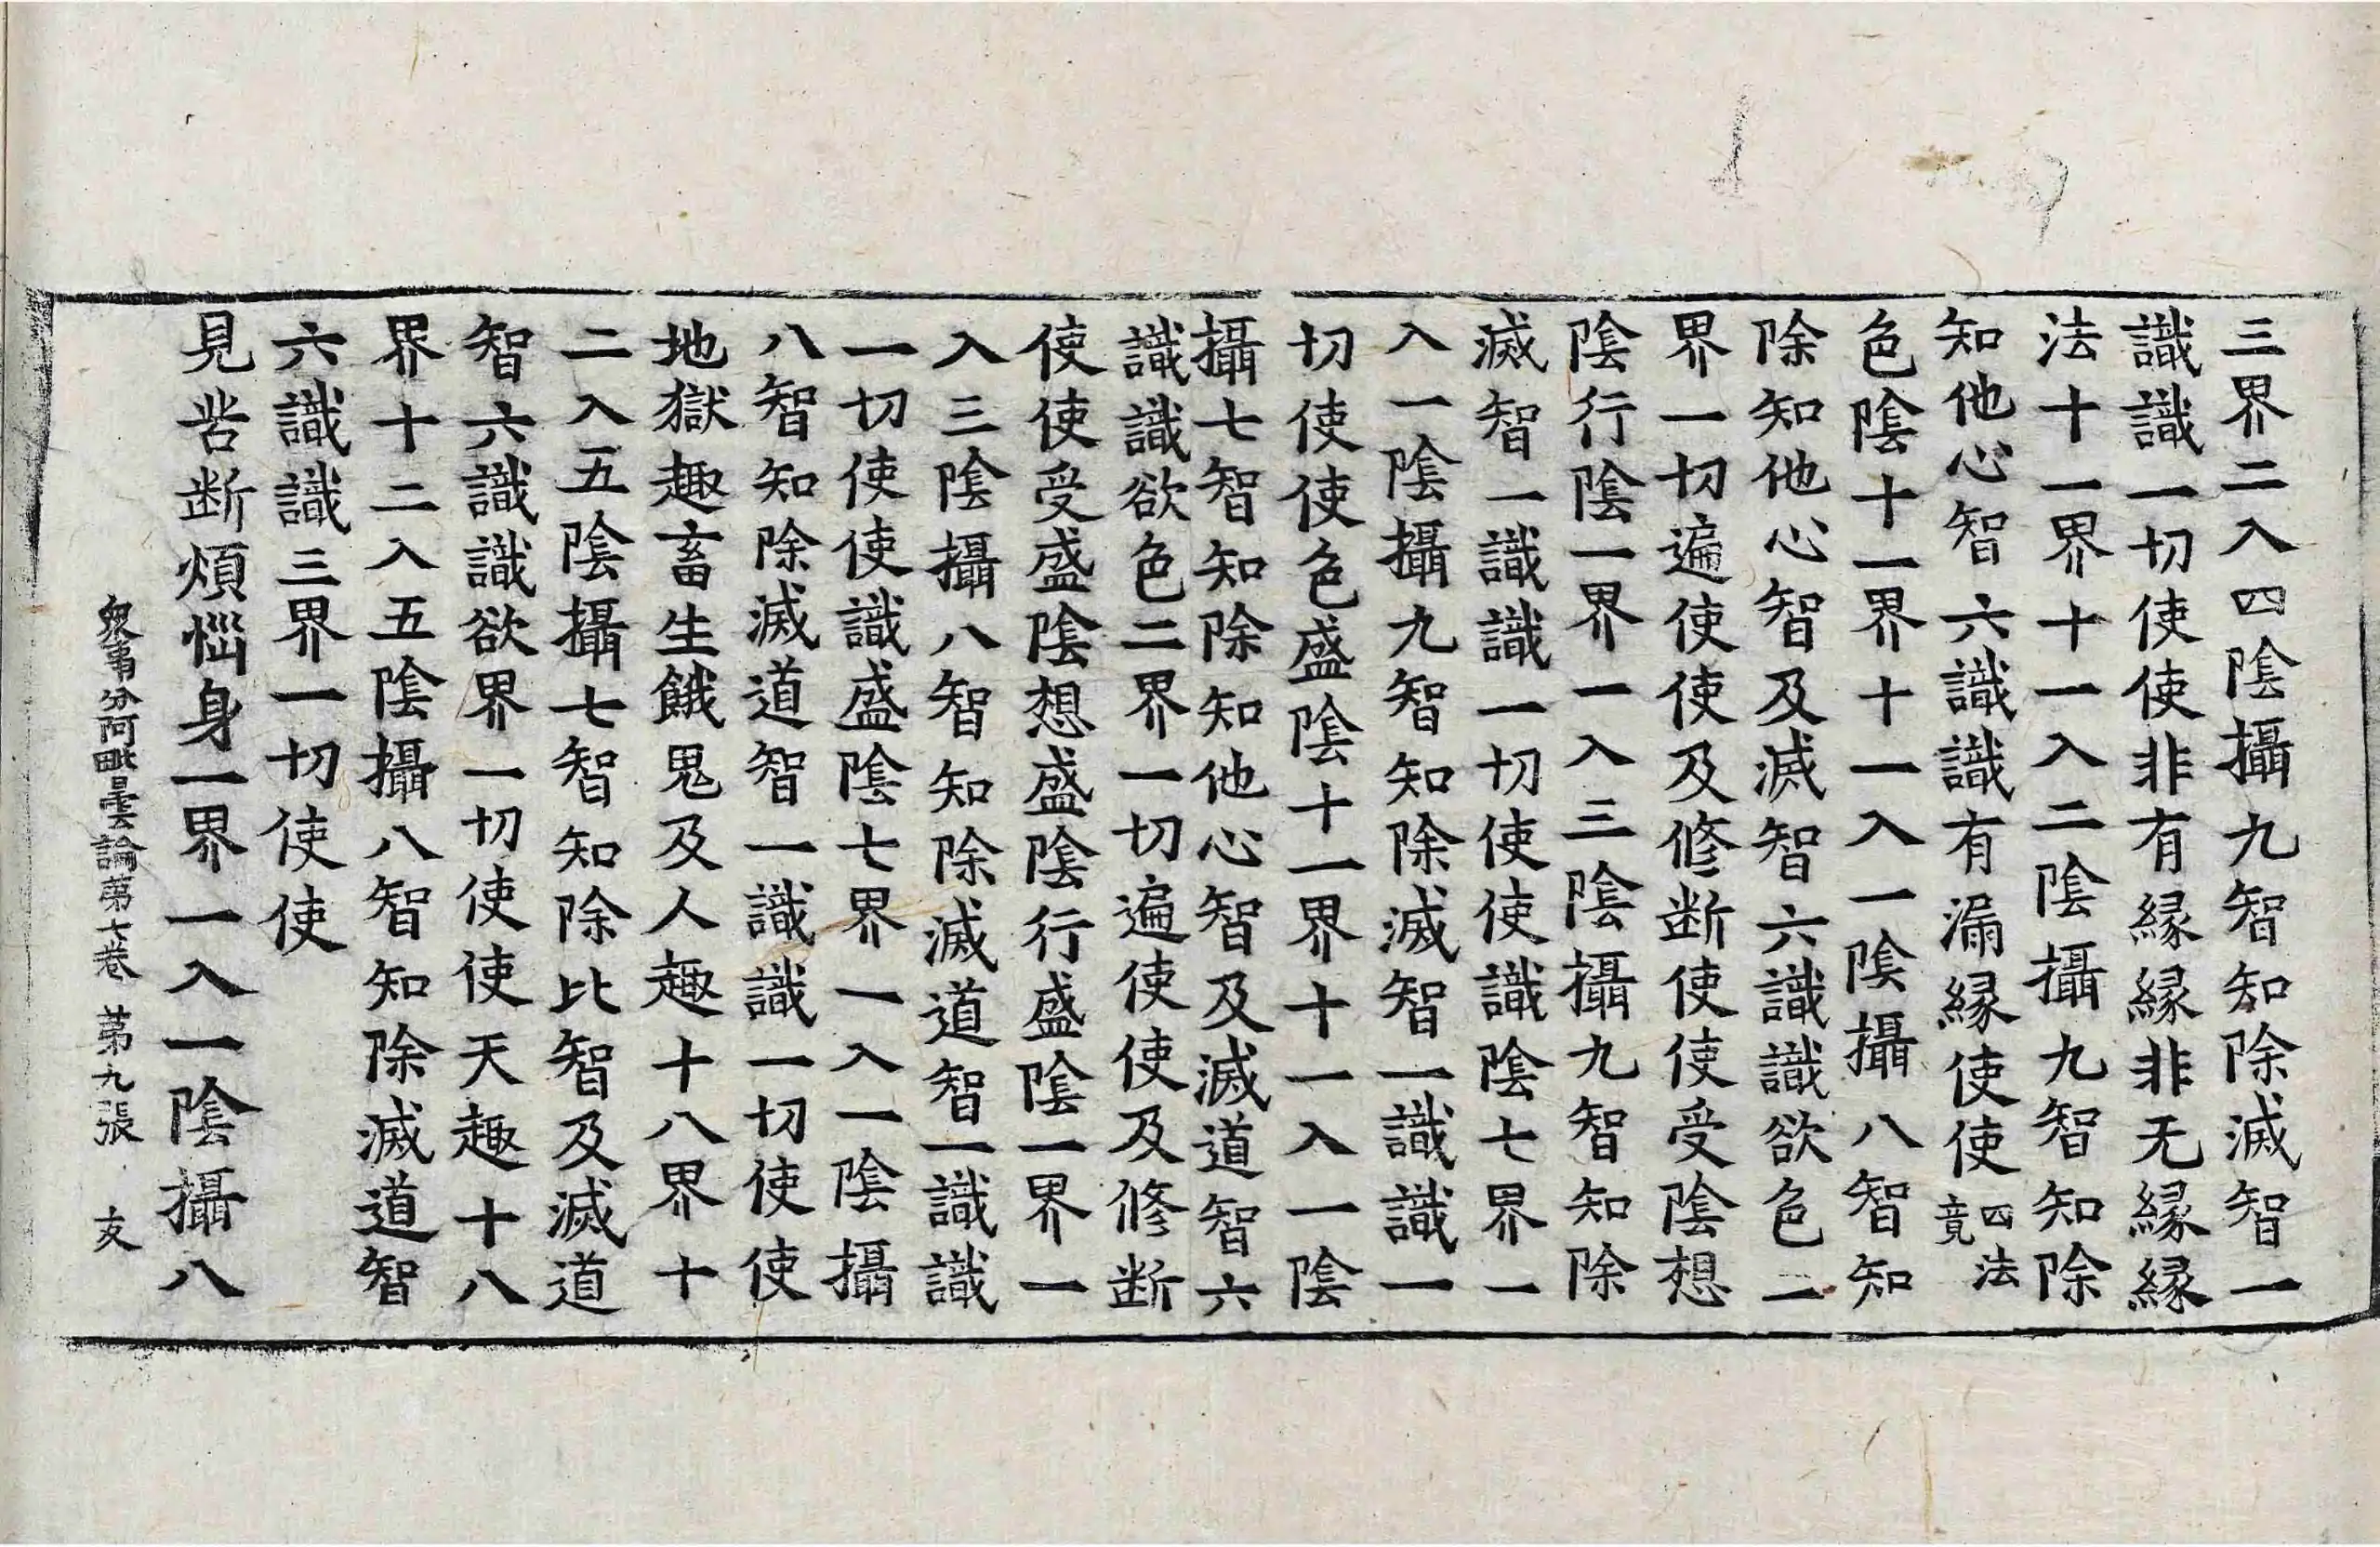 三界二入四陰攝九智知除滅智一
識識一切使使非有縁縁非无縁縁
法十一界十一入二陰攝九智知除
知他心智六識識有漏縁使使四法竟
色陰十一界十一入一陰攝八智知
除知他心智及滅智六識識欲色二
界一切遍使使及修断使使受陰想
陰行陰一界一入三陰攝九智知除
滅智一識識一切使使識陰七界一
入一陰攝九智知除滅智一識識一
切使使色盛陰十一界十一入一陰
攝七智知除知他心智及滅道智六
識識欲色二界一切遍使使及修断
使使受盛陰想盛陰行盛陰一界一
入三陰攝八智知除滅道智一識識
一切使使識盛陰七界一入一陰攝
八智知除滅道智一識識一切使使
地獄趣畜生餓鬼及人趣十八界十
二入五陰攝七智知除比智及滅道
智六識識欲界一切使使天趣十八
界十二入五陰攝八智知除滅道智
六識識三界一切使使
見苦断煩惱身一界一入一陰攝八
衆事分阿毗曇論苐七巻 苐九張 支